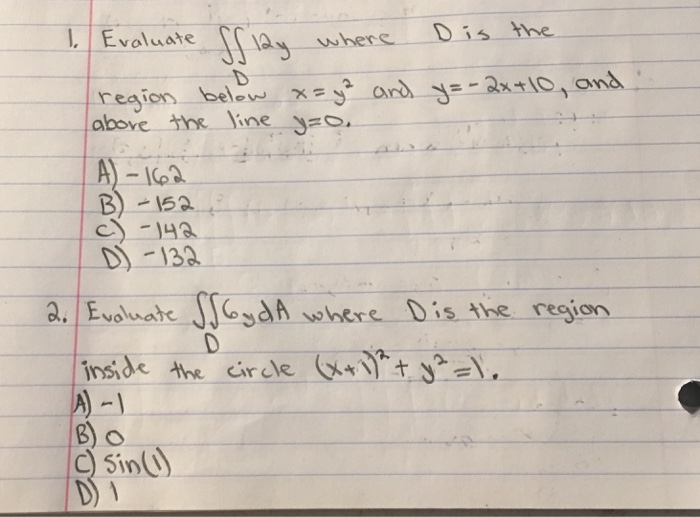 1. Evaluate ∬ 12y where D is the
D
region below x = y² and y = -2x+10, and
above the line y=0.
A) -162
B) -152
C) -142
D) -132
2. Evaluate ∬ 6y dA where D is the region
D
inside the circle (x+1)² + y² = 1.
A) -1
B) 0
C) Sin(1)
D) 1